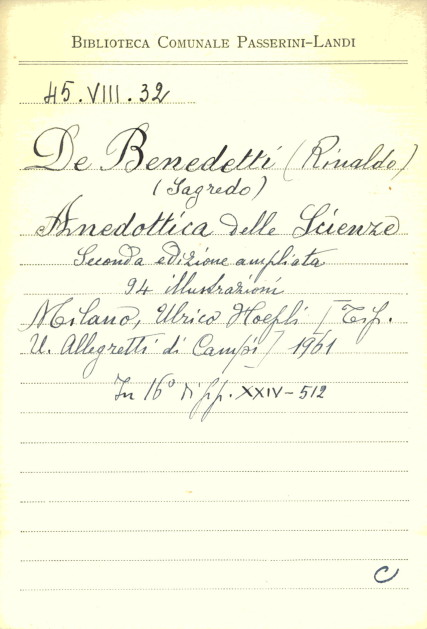 BIBLIOTECA COMUNALE PASSERINI-LANDI
45.VIII.32
De Benedetti (Rinaldo)
(Sagredo)
Anedottica delle Scienze
Seconda edizione ampliata
94 illustrazioni
Milano, Ulrico Hoepli [Tip.
U. Allegretti di Campi] 1961
In 16° di pp. XXIV-512
C